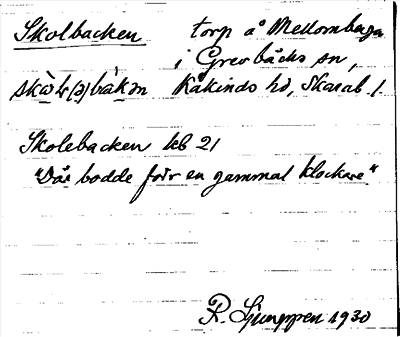 Skolbacken torp å Mellomberga
i Grevbäcks sn,
skò̱lr(ə)bàkən Kåkinds hd, Skarab l.
Skolebacken kb 21
"Där bodde förr en gammal klockare"
R. Ljunggren 1930